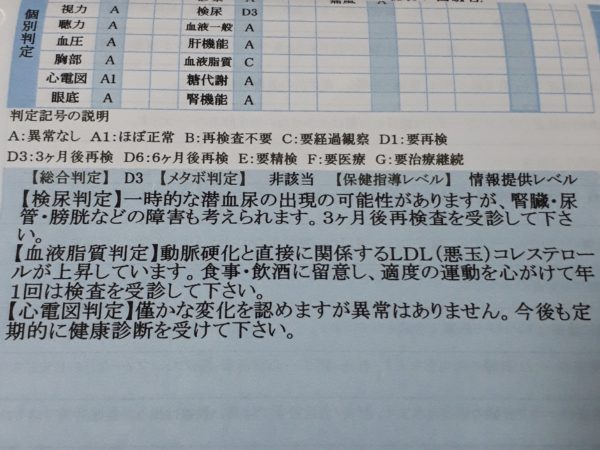 個別判定
視力 A 検尿 D3
聴力 A 血液一般 A
血圧 A 肝機能 A
胸部 A 血液脂質 C
心電図 A1 糖代謝 A
眼底 A 腎機能 A
判定記号の説明
A:異常なし A1:ほぼ正常 B:再検査不要 C:要経過観察 D1:要再検
D3:3ヶ月後再検 D6:6ヶ月後再検 E:要精検 F:要医療 G:要治療継続
【総合判定】 D3 【メタボ判定】 非該当 【保健指導レベル】 情報提供レベル
【検尿判定】一時的な潜血尿の出現の可能性がありますが、腎臓・尿
管・膀胱などの障害も考えられます。3ヶ月後再検査を受診して下さ
い。
【血液脂質判定】動脈硬化と直接に関係するLDL(悪玉)コレステロー
ルが上昇しています。食事・飲酒に留意し、適度の運動を心がけて年
1回は検査を受診して下さい。
【心電図判定】僅かな変化を認めますが異常はありません。今後も定
期的に健康診断を受けて下さい。